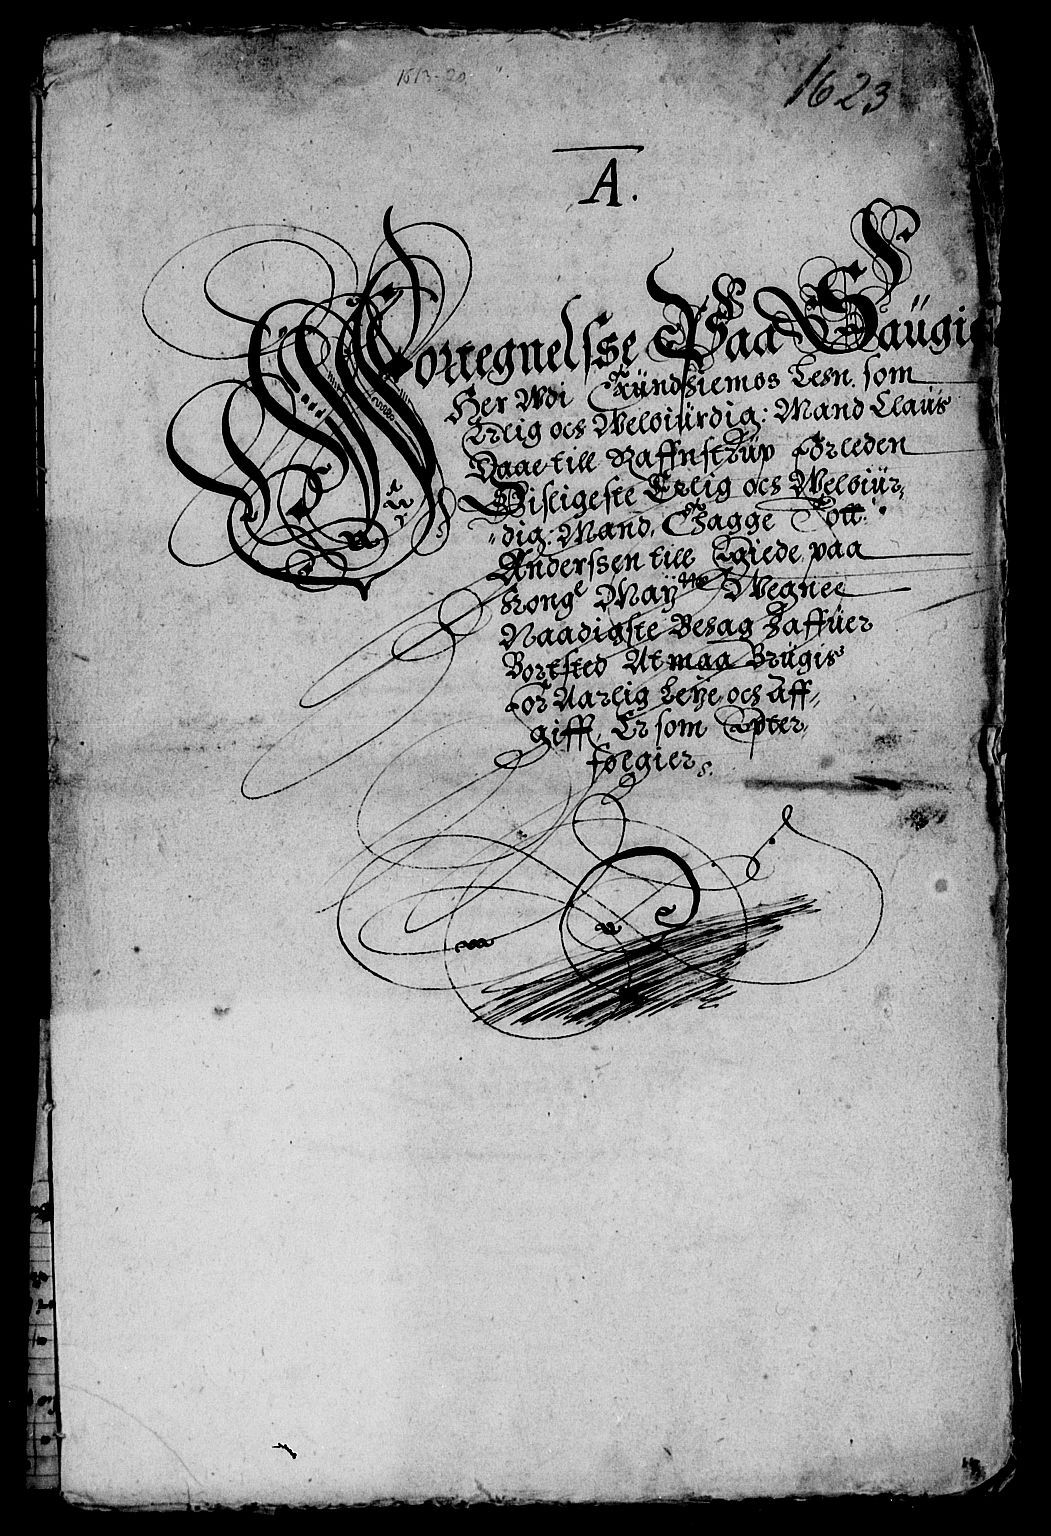 1613-20
1623
A.
Vortegnelsse Paa Saügie
Her Wdi Tründhiemos Lehn. som
Erlig och Welbiürdig: Mand Claüs
Daae till Raffnstrüp Forleden
Disligeste Erlig och Welbiür,
dig: Mand, Tagge Tott
Anderssen till Egiede paa
Konge Maytts Wegnee
Naadigste Behag Haffüer
Bortsted At maa Brügis
For Aarlig Leye och Aff,,
gifft, Er som Epter,
følgier